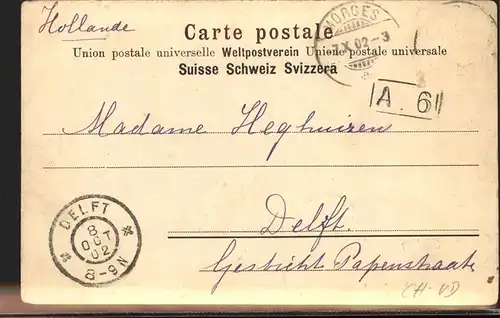 Hollande
Carte postale
Union postale universelle Weltpostverein Unione postale universale
Suisse Schweiz Svizzera
MORGES
7.X.02-3
A. 61
Madame Heghuizen
DELFT
8
OCT
02
8-9N
Delft.
Gesticht Papenstraat
CH-VD